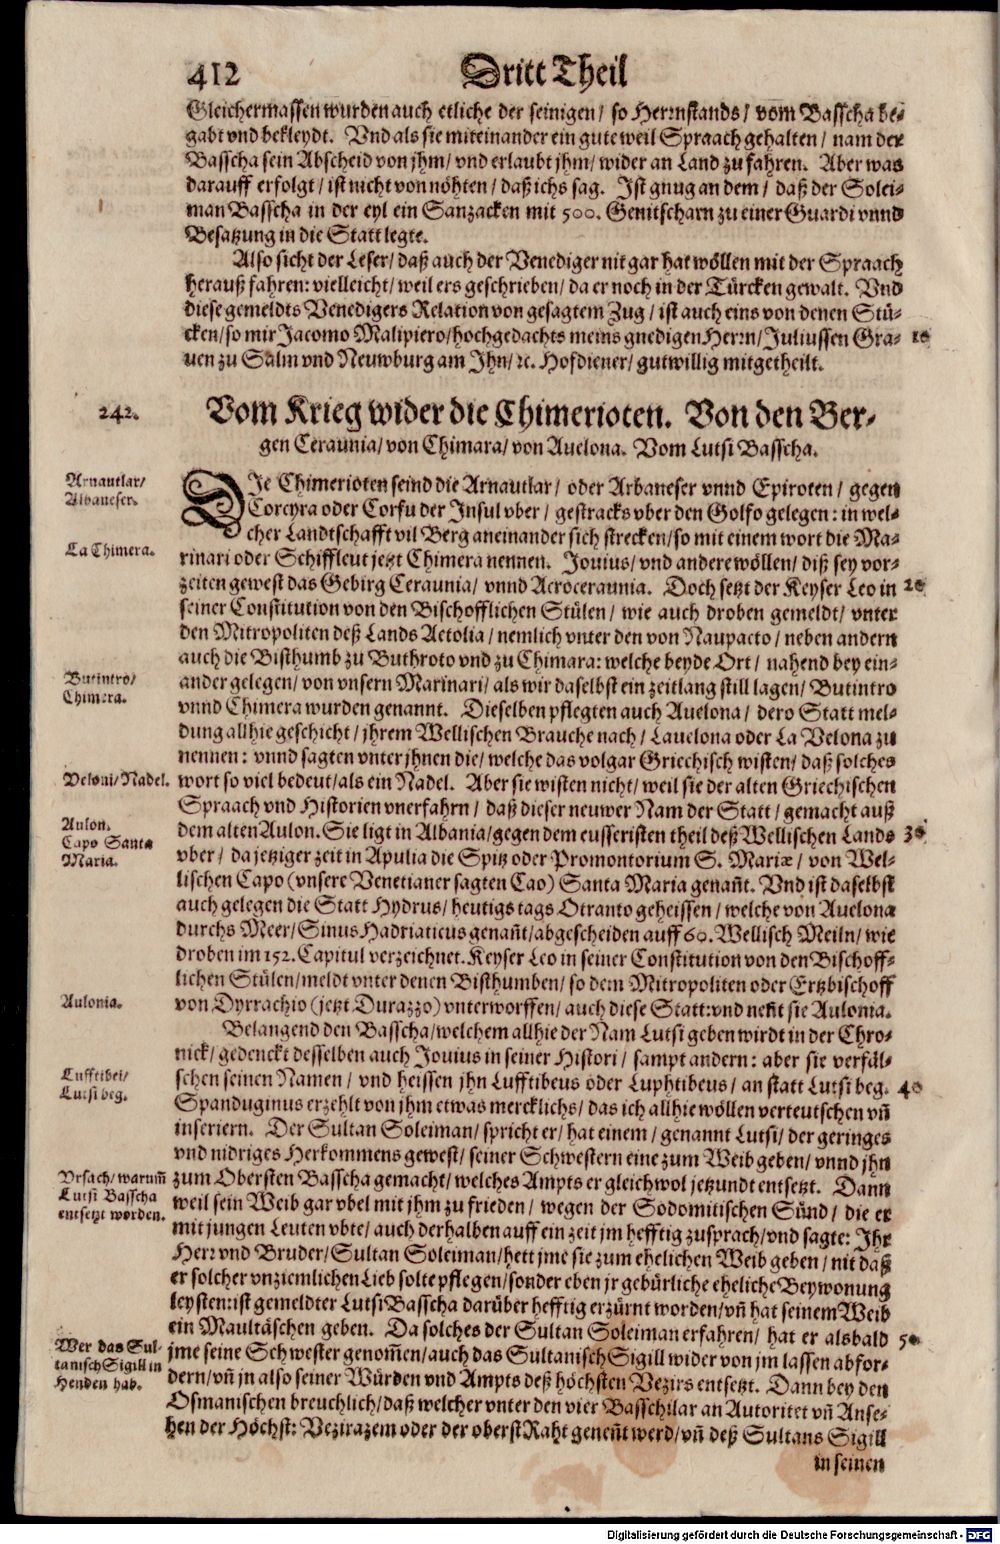 412 Dritt Theil
Gleichermassen wurden auch etliche der seinigen/ so Herrnstands/ vom Basscha be-
gabt vnd bekleydt. Vnd als sie miteinander ein gute weil Spraach gehalten/ nam der
Basscha sein Abscheid von jhm/ vnd erlaubt jhm/ wider an Land zu fahren. Aber was
darauff erfolgt/ ist nicht vonnöhten/ daß ichs sag. Ist gnug an dem/ daß der Solei-
man Basscha in der eyl ein Sanzacken mit 500. Genitscharn zu einer Guardi vnnd
Besatzung in die Statt legte.
Also sicht der Leser/ daß auch der Venediger nit gar hat wöllen mit der Spraach
herauß fahren: vielleicht/ weil ers geschrieben/ da er noch in der Türcken gewalt. Vnd
diese gemeldts Venedigers Relation von gesagtem Zug/ ist auch eins von denen Stü-
cken/ so mir Jacomo Malipiero/ hochgedachts meins gnedigen Herrn/ Juliussen Gra- 10
uen zu Salm vnd Neuwburg am Jhn/ ꝛc. Hofdiener/ gutwillig mitgetheilt.
242. Vom Krieg wider die Chimerioten. Von den Ber-
gen Ceraunia/ von Chimara/ von Auelona. Vom Lutsi Basscha.
Arnautlar/
Albaneser.
DIe Chimerioten seind die Arnautlar/ oder Arbaneser vnnd Epiroten/ gegen
Corcyra oder Corfu der Insul vber/ gestracks vber den Golfo gelegen: in wel-
cher Landtschafft vil Berg aneinander sich strecken/ so mit einem wort die Ma-
La Chimera.
rinari oder Schiffleut jetzt Chimera nennen. Jouius/ vnd andere wöllen/ diß sey vor-
zeiten gewest das Gebirg Ceraunia/ vnnd Acroceraunia. Doch setzt der Keyser Leo in 20
seiner Constitution von den Bischofflichen Stülen/ wie auch droben gemeldt/ vnter
den Mitropoliten deß Lands Aetolia/ nemlich vnter den von Naupacto/ neben andern
auch die Bisthumb zu Buthroto vnd zu Chimara: welche beyde Ort/ nahend bey ein-
Butintro/
Chimera.
ander gelegen/ von vnsern Marinari/ als wir daselbst ein zeitlang still lagen/ Butintro
vnnd Chimera wurden genannt. Dieselben pflegten auch Auelona/ dero Statt mel-
dung allhie geschicht/ jhrem Wellischen Brauche nach/ Lauelona oder La Velona zu
nennen: vnnd sagten vnter jhnen die/ welche das volgar Griechisch wisten/ daß solches
Veloni/ Nadel.
wort so viel bedeut/ als ein Nadel. Aber sie wisten nicht/ weil sie der alten Griechischen
Spraach vnd Historien vnerfahrn/ daß dieser neuwer Nam der Statt/ gemacht auß
Aulon.
Capo Santa
Maria.
dem alten Aulon. Sie ligt in Albania/ gegen dem eusseristen theil deß Wellischen Lands 30
vber/ da jetziger zeit in Apulia die Spitz oder Promontorium S. Mariæ/ von Wel-
lischen Capo (vnsere Venetianer sagten Cao) Santa Maria genañt. Vnd ist daselbst
auch gelegen die Statt Hydrus/ heutigs tags Otranto geheissen/ welche von Auelona
durchs Meer/ Sinus Hadriaticus genañt/ abgescheiden auff 60. Wellisch Meiln/ wie
droben im 152. Capitul verzeichnet. Keyser Leo in seiner Constitution von den Bischoff-
lichen Stülen/ meldt vnter denen Bisthumben/ so dem Mitropoliten oder Ertzbischoff
Aulonia.
von Dyrrachio (jetzt Durazzo) vnterworffen/ auch diese Statt: vnd neñt sie Aulonia.
Belangend den Basscha/ welchem allhie der Nam Lutsi geben wirdt in der Chro-
nick/ gedenckt desselben auch Jouius in seiner Histori/ sampt andern: aber sie verfäl-
Lufftibei/
Lutsi beg.
schen seinen Namen/ vnd heissen jhn Lufftibeus oder Luphtibeus/ an statt Lutsi beg. 40
Spanduginus erzehlt von jhm etwas mercklichs/ das ich allhie wöllen verteutschen vñ
inseriern. Der Sultan Soleiman/ spricht er/ hat einem/ genannt Lutsi/ der geringes
vnd nidriges Herkommens gewest/ seiner Schwestern eine zum Weib geben/ vnnd jhn
Vrsach/ warum̃
Lutsi Basscha
entsetzt worden.
zum Obersten Basscha gemacht/ welches Ampts er gleichwol jetzundt entsetzt. Dann
weil sein Weib gar vbel mit jhm zu frieden/ wegen der Sodomitischen Sünd/ die er
mit jungen Leuten vbte/ auch derhalben auff ein zeit jm hefftig zusprach/ vnd sagte: Jhr
Herr vnd Bruder/ Sultan Soleiman/ hett jme sie zum ehelichen Weib geben/ nit daß
er solcher vnziemlichen Lieb solte pflegen/ sonder eben jr gebürliche eheliche Beywonung
leysten: ist gemeldter Lutsi Basscha darüber hefftig erzürnt worden/ vñ hat seinem Weib
ein Maultäschen geben. Da solches der Sultan Soleiman erfahren/ hat er alsbald 50
Wer das Sul-
tanisch Sigill in
Henden hab.
jme seine Schwester genom̃en/ auch das Sultanisch Sigill wider von jm lassen abfor-
dern/ vñ jn also seiner Würden vnd Ampts deß höchsten Vezirs entsetzt. Dann bey den
Osmanischen breuchlich/ daß welcher vnter den vier Basschilar an Autoritet vñ Anse-
hen der Höchst: Vezirazem oder der oberst Raht geneñt werd/ vñ deß Sultans Sigill
in seinen
Digitalisierung gefördert durch die Deutsche Forschungsgemeinschaft - DFG